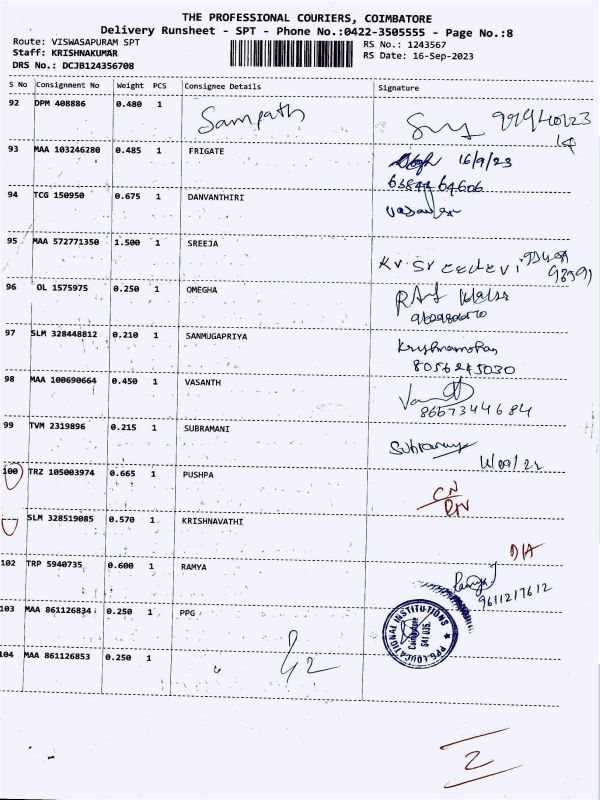 THE PROFESSIONAL COURIERS, COIMBATORE
Delivery Runsheet - SPT - Phone No.:0422-3505555 - Page No.:8
Route: VISWASAPURAM SPT
RS No.: 1243567
Staff: KRISHNAKUMAR
RS Date: 16-Sep-2023
DRS No.: DCJB124356708
S No Consignment No Weight PCS Consignee Details Signature
92 DPM 408886 0.480 1 Sampath
93 MAA 103246280 0.485 1 FRIGATE 16/9/23
94 TCG 150950 0.675 1 DANVANTHIRI
95 MAA 572771350 1.500 1 SREEJA
96 OL 1575975 0.250 1 OMEGHA
97 SLM 328448812 0.210 1 SANMUGAPRIYA
8056245030
98 MAA 100690664 0.450 1 VASANTH
8667344684
99 TVM 2319896 0.215 1 SUBRAMANI
100 TRZ 105003974 0.665 1 PUSHPA
SLM 328519085 0.570 1 KRISHNAVATHI
D/A
102 TRP 5940735 0.600 1 RAMYA Ramya
9611217612
103 MAA 861126834 0.250 1 PPG
PPG EDUCATIONAL INSTITUTIONS
Coimbatore
641 035.
104 MAA 861126853 0.250 1 "
2